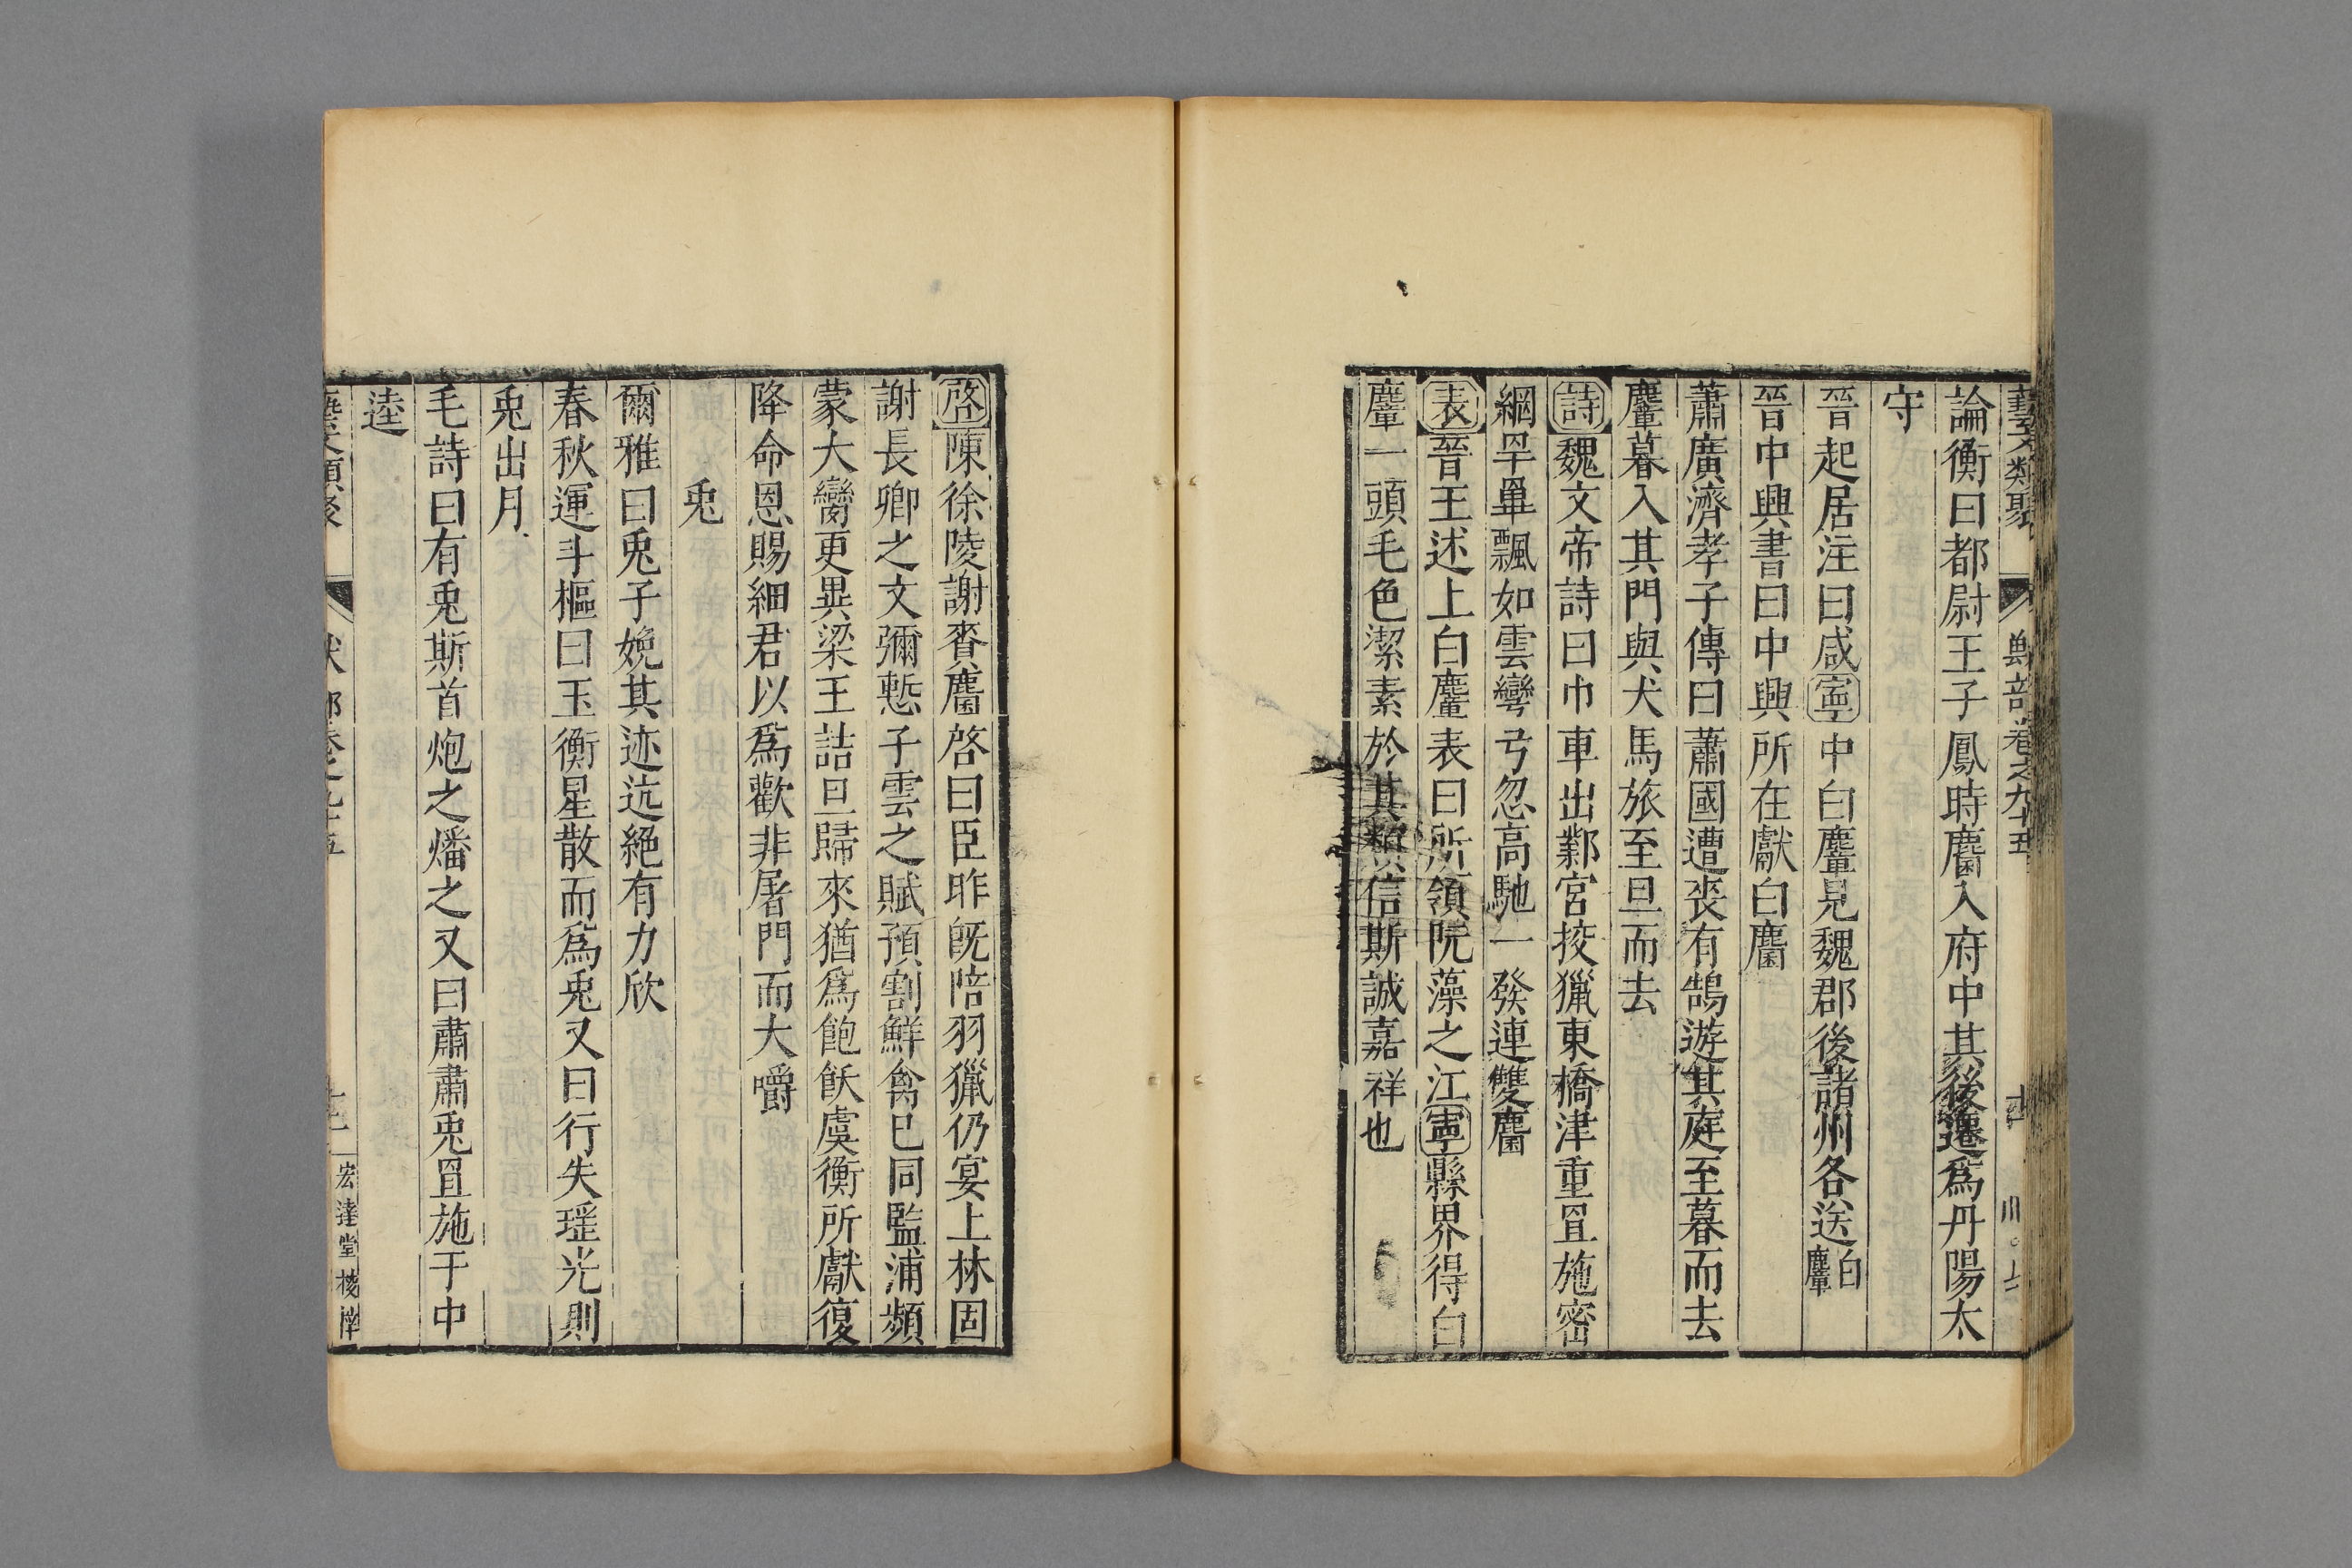 藝文類聚 獸部卷之九十五
論衡曰都尉王子鳳時麕入府中其後遷爲丹陽太
守
晉起居注曰咸寧中白麞見魏郡後諸州各送白麞
晉中興書曰中興所在獻白麕
蕭廣濟孝子傳曰蕭國遭喪有鵠遊其庭至暮而去
麞暮入其門與犬馬旅至旦而去
詩魏文帝詩曰巾車出鄴宮挍獵東橋津重罝施密
網罕罼飄如雲彎弓忽高馳一發連雙麕
表晉王述上白麞表曰所領阮藻之江寧縣界得白
麞一頭毛色潔素於其類信斯誠嘉祥也
啓陳徐陵謝賚麕啓曰臣昨旣陪羽獵仍宴上林固
謝長卿之文彌慙子雲之賦預割鮮禽已同監浦頻
蒙大臠更異梁王詰旦歸來猶爲飽飫虞衡所獻復
降命恩賜細君以爲歡非屠門而大嚼
兎
爾雅曰兎子娩其迹迒絕有力欣
春秋運斗樞曰玉衡星散而爲兎又曰行失瑤光則
兎出月
毛詩曰有兎斯首炮之燔之又曰肅肅兎罝施于中
逵
藝文類聚 獸部卷之九十五 宏達堂